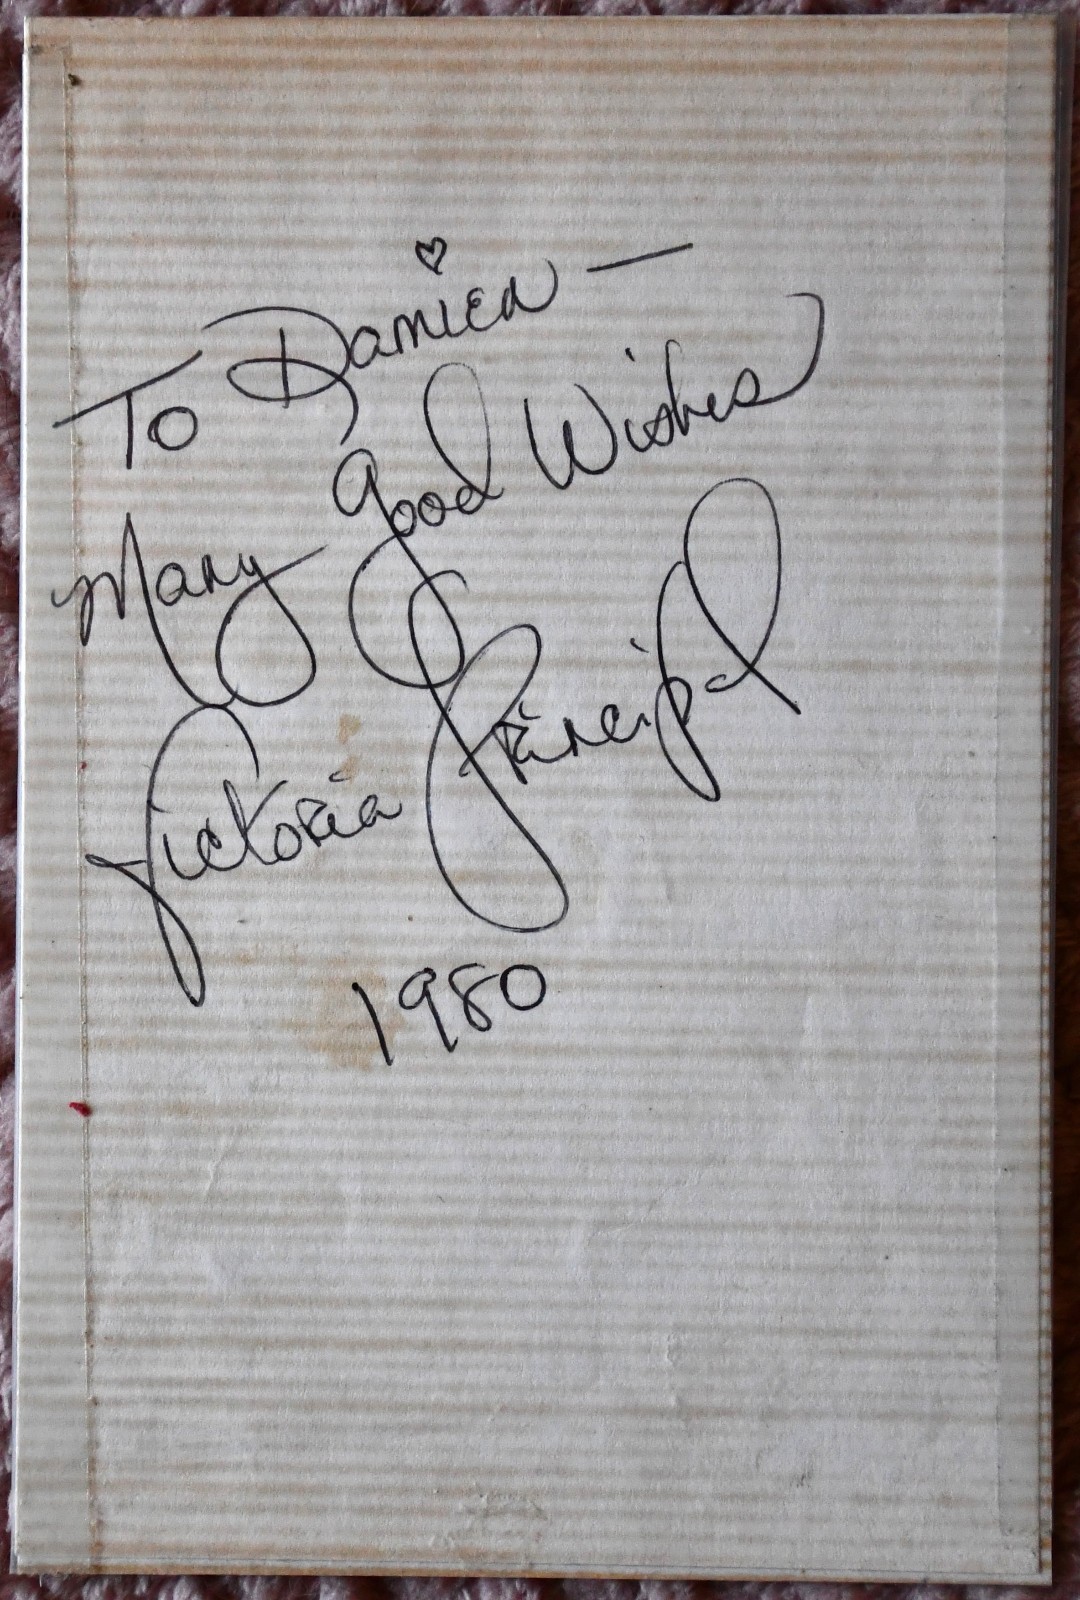 To Damien —
Many good Wishes
Victoria Principal
1980